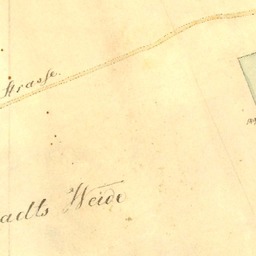 Strasse
adts Weide